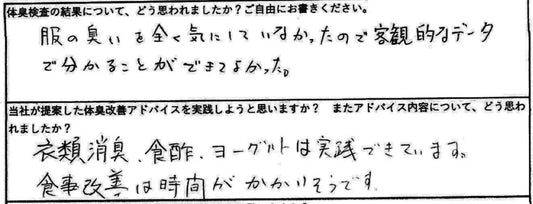 体臭検査の結果について、どう思われましたか？ご自由にお書きください。
服の臭いを全く気にしていなかったので客観的なデータ
で分かることができてよかった。
当社が提案した体臭改善アドバイスを実践しようと思いますか？ またアドバイス内容について、どう思わ
れましたか？
衣類消臭、食酢、ヨーグルトは実践できています。
食事改善は時間がかかりそうです